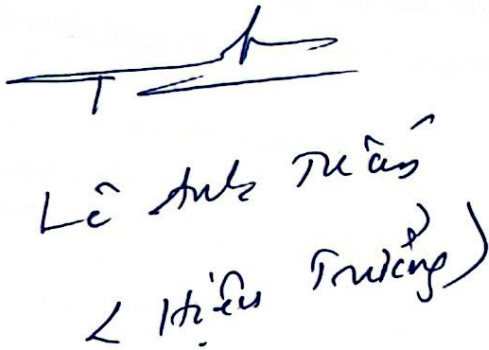 Lê Anh Tuấn
(Hiệu Trưởng)